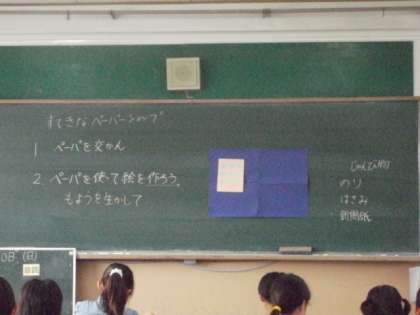 すてきなペーパーショップ
1 ペーパを交かん
2 ペーパを使って絵を作ろう。
もようを生かして
じゅんびするもの
のり
はさみ
新聞紙